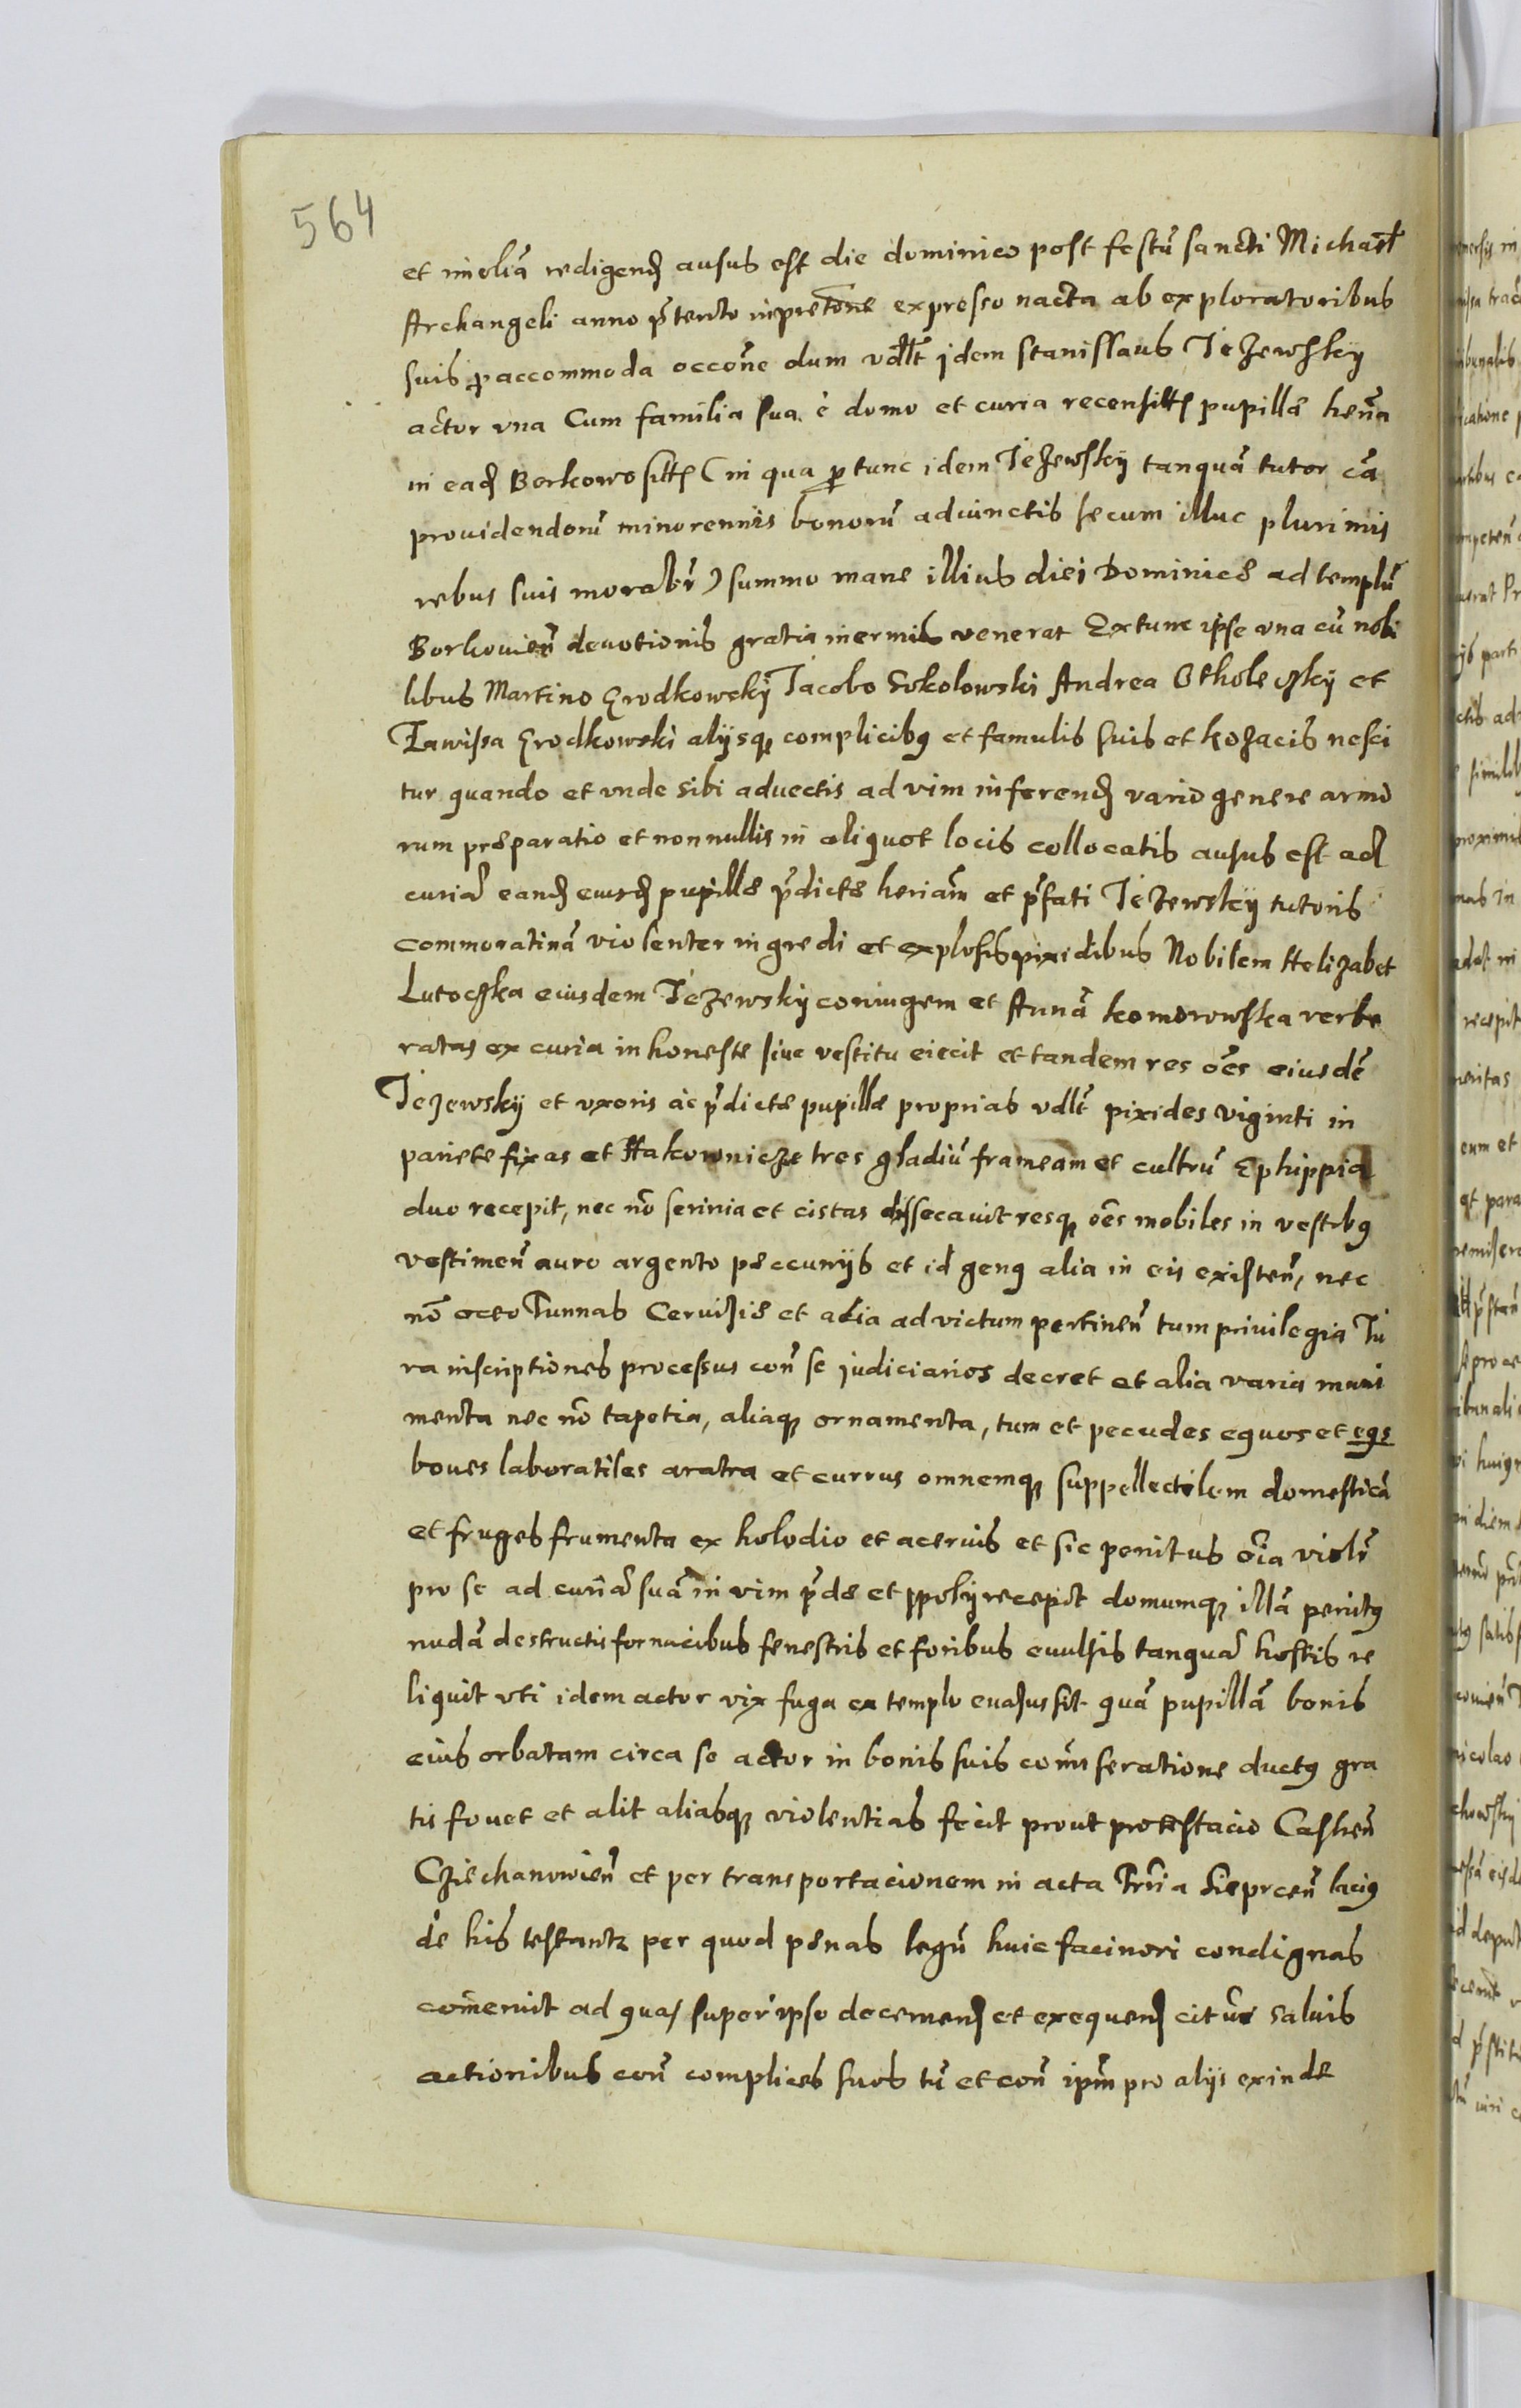 564
et in oliã redigenđ ausus est die dominico post festũ sancti Michaeł
Archangeli anno p̃tento inpretone expresso nacta ab exploratoribus
suis p accommoda occoñe dum vdłt idem stanislaus Jeżewsky
actor vna Cum familia sua è domo et curia recensitæ pupillæ hen̄a
in eađ Borkowo sittæ (in qua p tunc idem Jeżewsky tanquã tutor cã
prouidendorũ minorennis bonorũ adiunctis secum illuc plurimis
rebus suis morabr̃) summo mane illius diei Dominicæ ad templũ
Borkouień deuotionis gratia inermis venerat Extunc ipse vna cũ nobi
libus Martino Grodkowsky Jacobo Sokolowski Andrea Otholeczky et
Zawissa Grodkowski alijsq complicibꝰ et famulis suis et kozacis nesci
tur quando et vnde sibi aduectis ad vim inferenđ vario genere armo
rum præparatio et nonnullis in aliquot locis collocatis ausus est ad
curiã eanđ eiusđ pupillæ p̃dictæ heriam̃ et p̃fati Jeżewsky tutoris
commoratinã violenter ingredi et explosis pixidibus Nobilem Helizabet
Lutoczka eiusdem Jeżewsky coniugem et Annã komorowska verbe
ratas ex curia inhoneste siue vestitu eiecit et tandem res oẽs eiusdẽ
Jeżewsky et vxoris ac p̃dictæ pupillæ proprias vdłt pixides viginti in
pariete fixas et Hakownicze tres gladiũ frameam et cultrũ Ephippia
duo recepit, nec nõ scrinia et cistas dissecauit resq oẽs mobiles in vestibꝰ
vestimeñ auro argento pæccunijs et id genꝰ alia in eis existeñ, nec
nõ octo Tunnas Ceruisiæ et alia ad victum pertineñ tum priuilegia Ju
ra inscriptiones processus coñ se judiciarios decret et alia varia muni
menta nec nõ tapetia, aliaq ornamenta, tum et pecudes equos et eqs
boues laboratiles aratra et currus omnemq suppellectilem domesticã
et fruges frumenta ex holodio et aceruis et sic penitus oĩa violr̃
pro se ad curiã suã in vim p̃dæ et spolij recepit domumq illã penitꝰ
nudã destructis fornacibus fenestris et foribus euulsis tanquã hostis re
liquit vti idem actor vix fuga ex templo euasus sit quã pupillã bonis
eius orbatam circa se actor in bonis suis comiseratione ductꝰ gra
tis fouet et alit aliasq violentias fecit prout protestacio Castreñ
Cziechanowień et per transportacionem in acta Trr̃ia Sieprceñ lacius
de his testantr per quod pænas legũ huic facinori condignas
com̃eruit ad quas super ipso decernenđ et exequenđ citur̃ saluis
actionibus coñ complices suos tũ et coñ ipm̃ pro alijs exinde